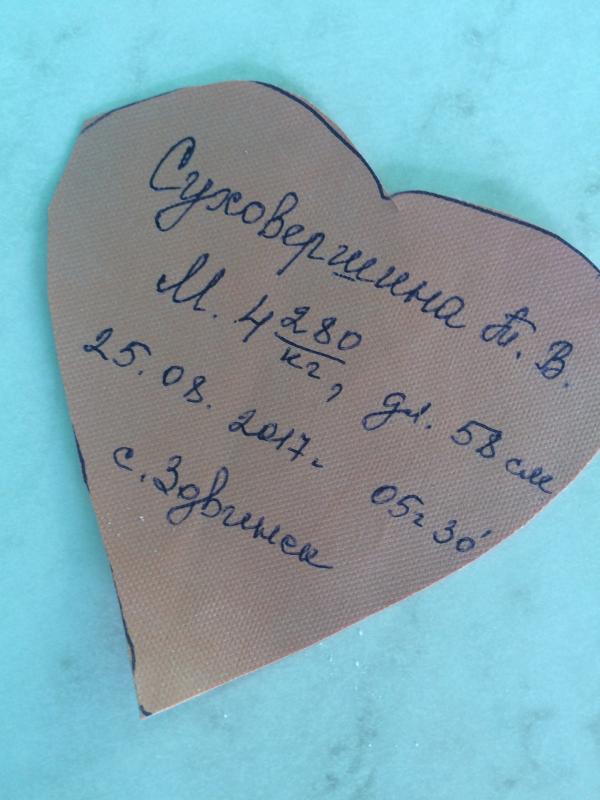 Суховершина Т. В.
М. 4 280/кг, дл. 58 см
25. 08. 2017г. 05ч 30'
с. Здвинск